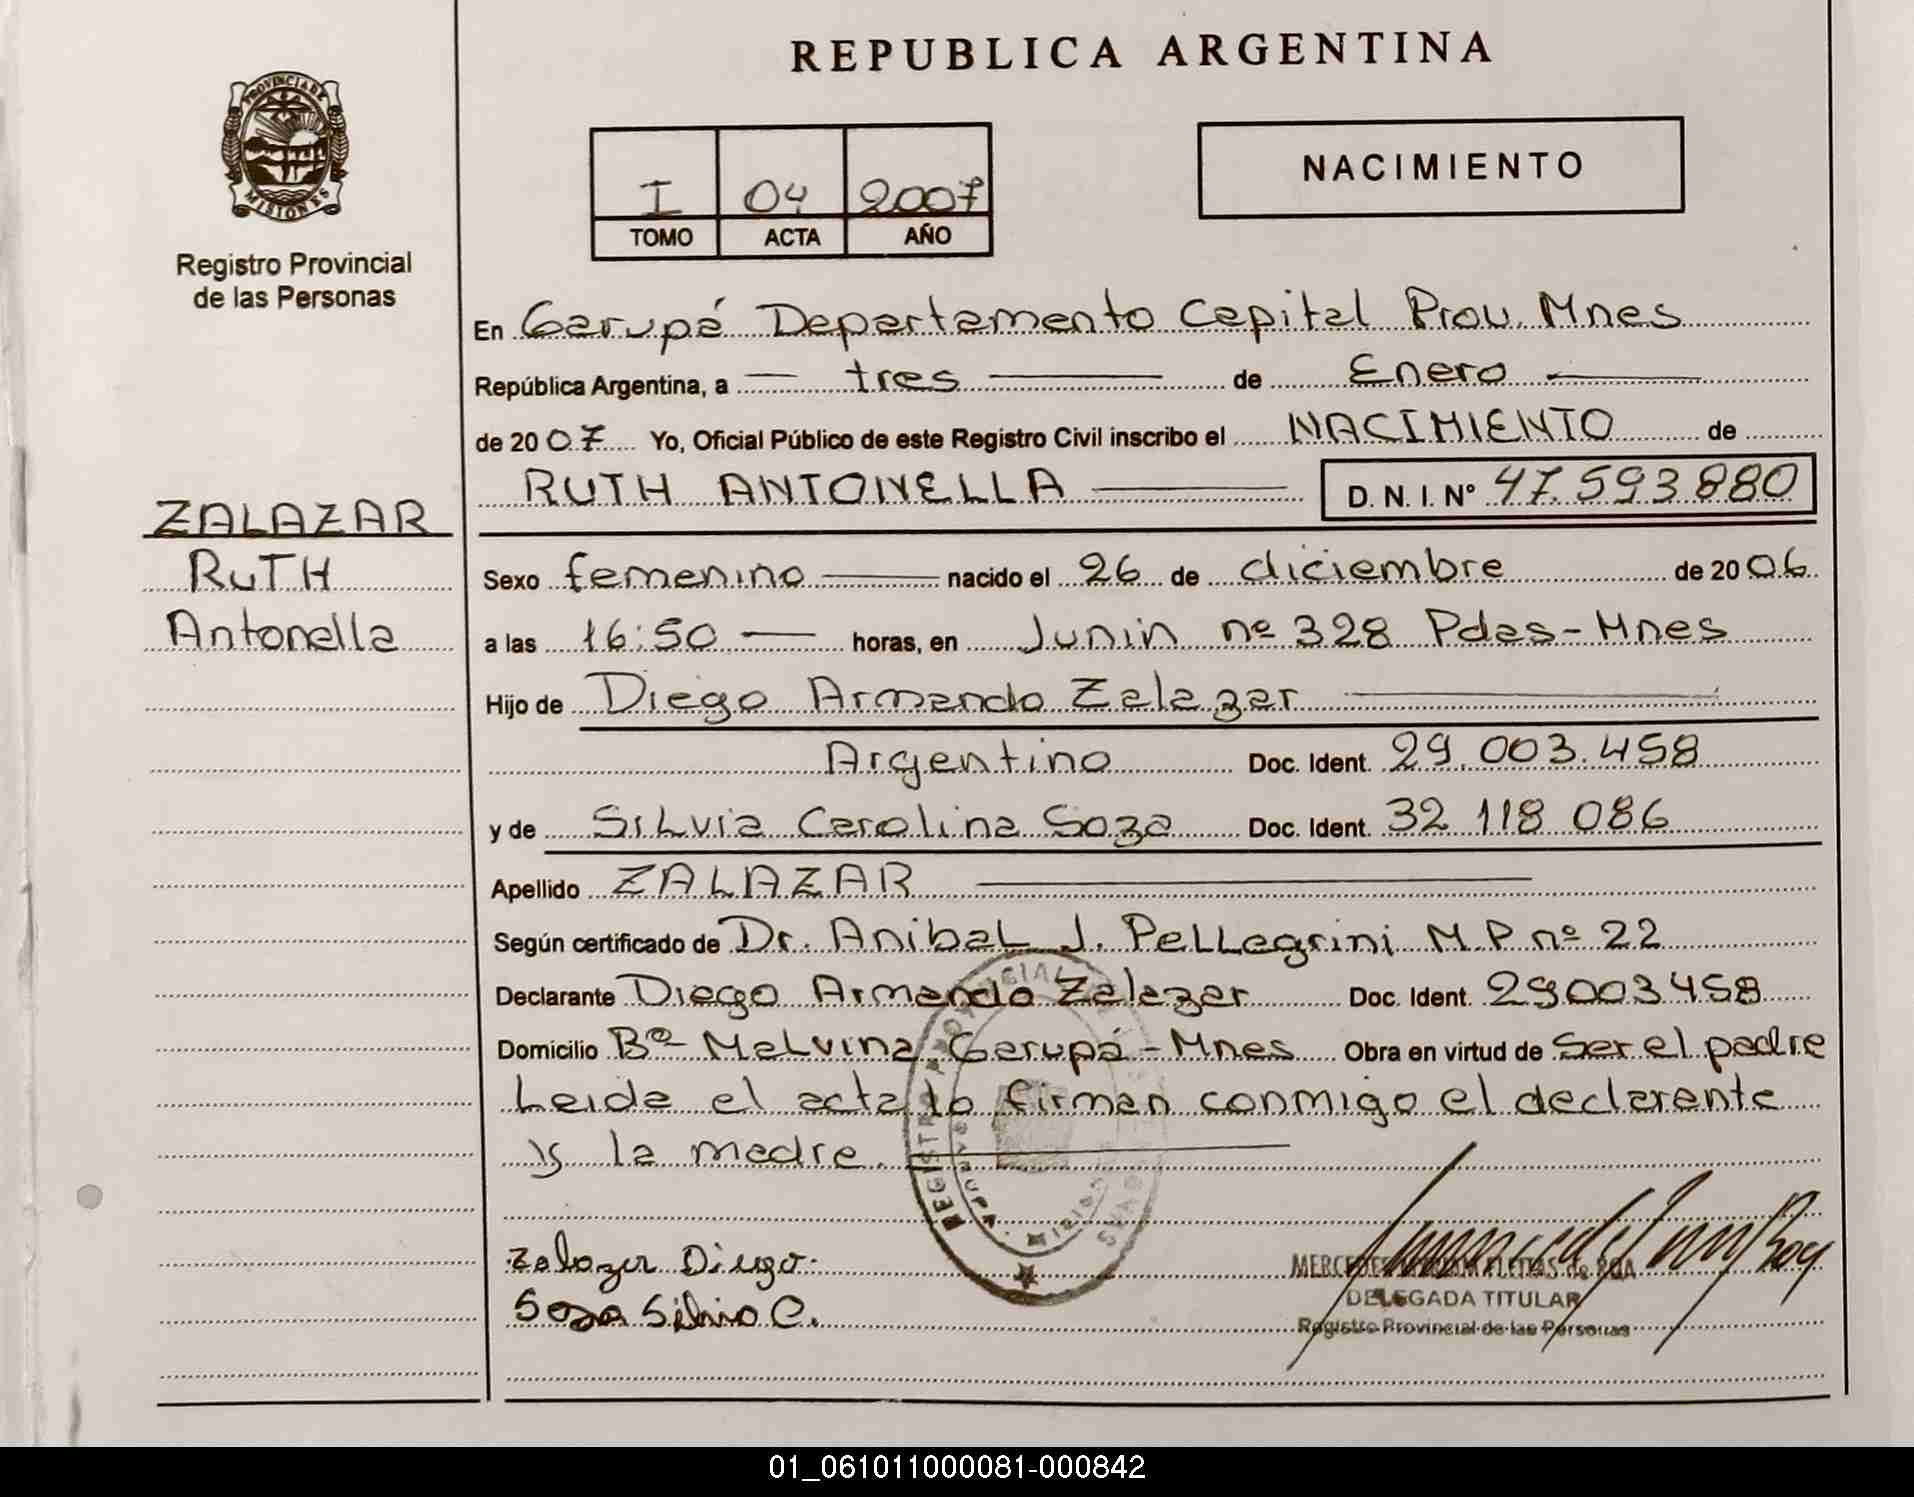 REPUBLICA ARGENTINA
PROVINCIA DE
MISIONES
Registro Provincial
de las Personas
I 04 2007
TOMO ACTA AÑO
NACIMIENTO
En Garupá Departamento Capital Prov. Mnes
República Argentina, a — tres — de Enero —
de 2007 Yo, Oficial Público de este Registro Civil inscribo el NACIMIENTO de
RUTH ANTONELLA — D. N. I. Nº 47.593.880
ZALAZAR
RUTH
Antonella
Sexo femenino — nacido el 26 de diciembre de 2006
a las 16:50 — horas, en Junin nº 328 Pdas-Mnes
Hijo de Diego Armando Zalazar
Argentino Doc. Ident. 29.003.458
y de Silvia Carolina Soza Doc. Ident. 32 118 086
Apellido ZALAZAR —
Según certificado de Dr. Anibal J. Pellegrini M.P. nº 22
Declarante Diego Armando Zalazar Doc. Ident. 29003458
Domicilio Bº Malvina, Garupá-Mnes Obra en virtud de Ser el padre
Leida el acta lo firman conmigo el declarante
y la madre.
Zalazar Diego.
Soza Silvia C.
DELEGADA TITULAR
Registro Provincial de las Personas
01_061011000081-000842